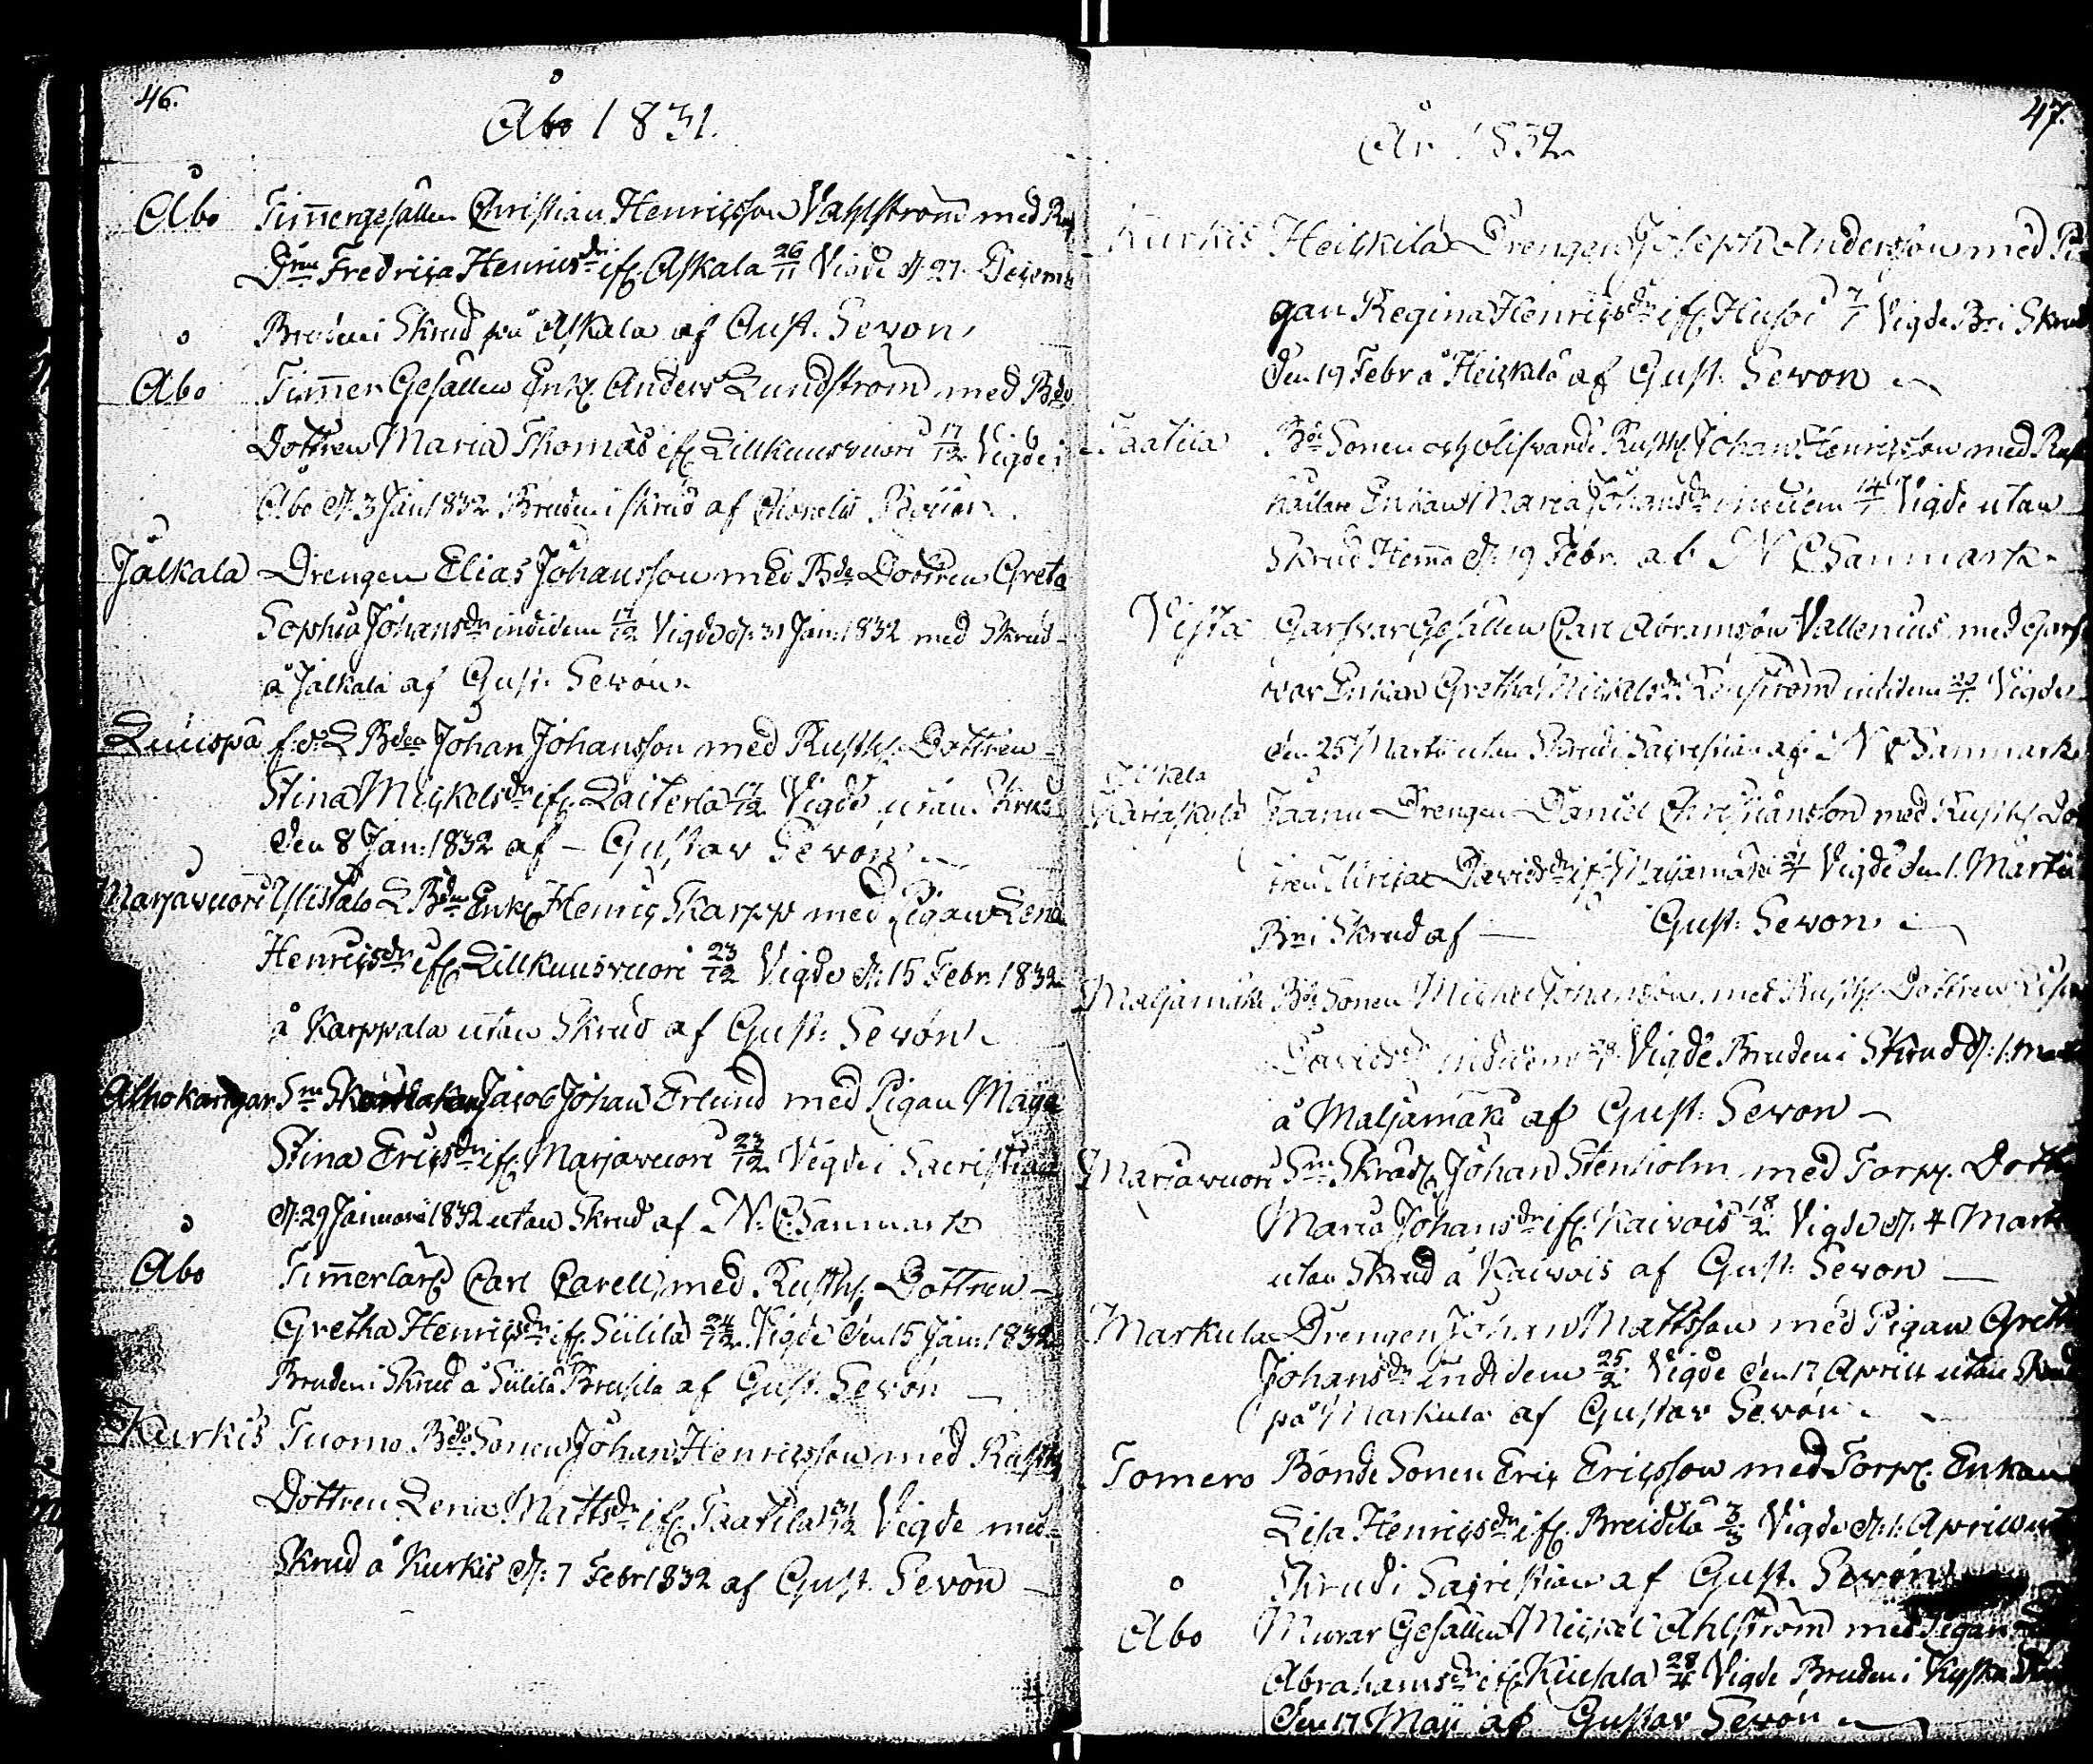 46.
Åbo 1831.
Åbo Timmergesällen Christian Henricsson Vahlström med
Dtrn Fredrica Henricsdr ifr. Askala 26/11 Vigde d. 27 Decemb
Bruden i Skrud på Askala af Gust. Sevon
Åbo Timmer Gesällen Enkl. Anders Lundström med Bde
Dottren Maria Thomasdr ifr. Lillkuusvuori 17/12 Vigde i
Åbo d. 3 Jan. 1832 Bruden i skrud af
Jälkälä Drengen Elias Johansson med Bde Dottren Greta
Sophia Johansdr indidem 17/12 Vigde d. 31 Jan. 1832 med Skrud
å Jälkälä af Gust. Sevon
f.d. L. Bden Johan Johansson med Rusth. Dottren
Stina Mickelsdr ifr. Laiterla 17/12 Vigde utan Skrud
den 8 Jan. 1832 af – Gustav Sevon
Marjavuori Ylistalo L. Bden Enkl. Henric Skarpp med Pigan Lena
Henricsdr ifr. Lillkuusvuori 23/12 Vigde d. 15 Febr. 1832
å Karppala utan Skrud af Gust. Sevon
Alhokangar Jacob Johan Erlund med Pigan Maja
Stina Ericsdr ifr. Marjavuori 23/12 Vigde i Sacristian
d. 29 Januari 1832 utan Skrud af N. C. Sanmark
Åbo Timmerkarl Carl Carell med Rusth. Dottren
Gretha Henricsdr ifr. Siililä 24/12 Vigde den 15 Jan. 1832
Bruden i Skrud å Siililä af Gust. Sevon
Kurkis Tuomo Bde Sonen Johan Henricsson med Rusth.
Dottren Lena Mattsdr ifr. Taatila 31/12 Vigde med
Skrud å Kurkis d. 7 Febr 1832 af Gust. Sevon
47.
År 1832
Kurkis Heickilä Drengen Joseph Andersson med Pi-
gan Regina Henricsdr ifr. Husoi 7/1 Vigde Brn i Skrud
den 19 Febr å Heickilä af Gust. Sevon
Taatila Bde Sonen och blifvande Rusth. Johan Henricsson med Rust
hållare Enkan Maria Johansdr indidem 14/1 Vigde utan
Skrud Hemma d. 19 Febr. af N C Sanmark
Vista Garfvar Gesällen Carl Abramsson Vallenius med Garf
var Enkan Gretha Mickelsdr Lenström indidem Vigde
den 25 Martii utan Skrud i Sacristian af N C Sanmark
Jaanu Drengen Daniel Christiansson med Rusth. Dot
tren Davidsdr ifr. Maljamäki 21/1 Vigde den 1. Martii
Brn i Skrud af — Gust. Sevon
Maljamäki Bde Sonen Mickel Johansson med Rusth. Dottren Lisa
Davidsdr indidem Vigde Bruden i Skrud d. 1. Mart
å Maljamäki af Gust. Sevon –
Marjavuori Skräd. Johan Stenholm med Torp. Dottr
Maria Johansdr ifr. Kaivois 18/2 Vigde d. 4 Mart
utan Skrud å Kaivois af Gust. Sevon —
Markula Drengen Johan Mattsson med Pigan Greth
Johansdr indidem 25/2 Vigde den 17 April utan Skrud
på Markula af Gustav Sevon
Tomero Bonde Sonen Eric Ericsson med Torp. Enkan
Lisa Henricsdr ifr. Breidilä 3/3 Vigde d. 1. April
Skrud i Sacristian af Gust. Sevon
Åbo Murar Gesällen Mickel Ahlström med Pigan
Abrahamsdr ifr. Kuusala 28/4 Vigde Bruden i
den 17 Maji af Gustav Sevon